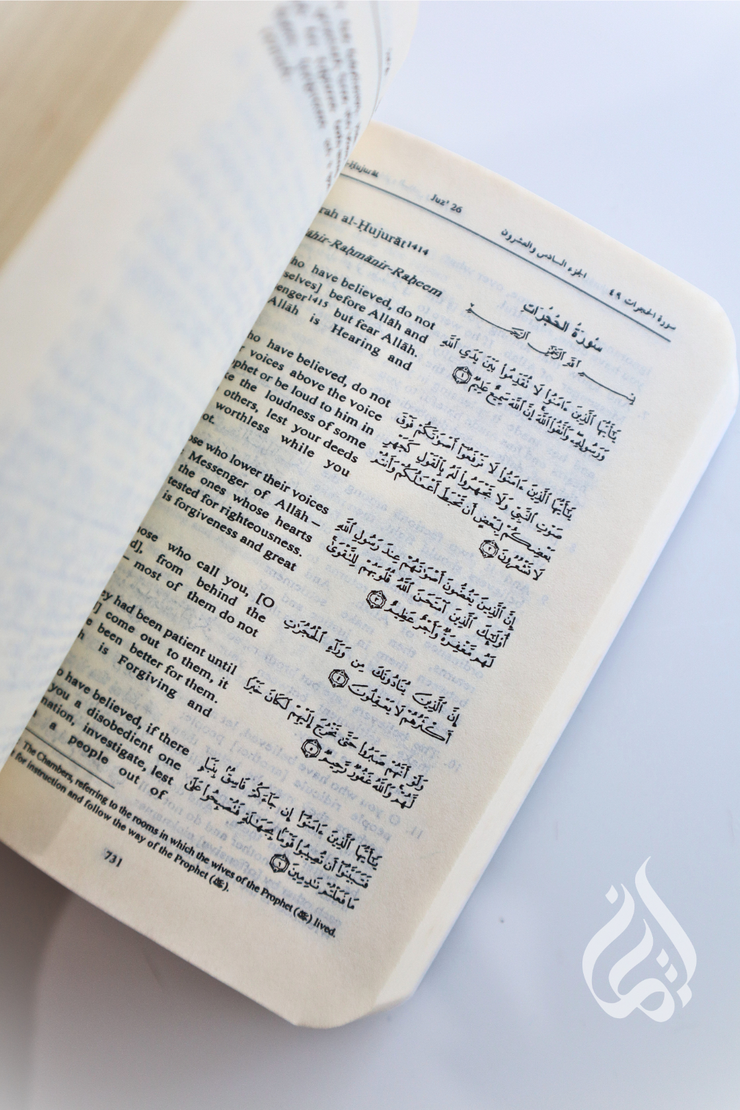 Juz' 26
الجزء السادس والعشرون
سورة الحجرات ٤٩
rah al-Ḥujurāt¹⁴¹⁴
āhir-Raḥmānir-Raḥeem
سُورَةُ الحُجُرَات
بِسْمِ اللَّهِ الرَّحْمَٰنِ الرَّحِيمِ
ho have believed, do not
selves] before Allāh and
enger¹⁴¹⁵ but fear Allāh.
Allāh is Hearing and
يَٰٓأَيُّهَا ٱلَّذِينَ ءَامَنُوا۟ لَا تُقَدِّمُوا۟ بَيْنَ يَدَىِ ٱللَّهِ
وَرَسُولِهِۦ وَٱتَّقُوا۟ ٱللَّهَ إِنَّ ٱللَّهَ سَمِيعٌ عَلِيمٌ ١
ho have believed, do not
voices above the voice
phet or be loud to him in
e the loudness of some
others, lest your deeds
worthless while you
ot.
يَٰٓأَيُّهَا ٱلَّذِينَ ءَامَنُوا۟ لَا تَرْفَعُوٓا۟ أَصْوَٰتَكُمْ فَوْقَ
صَوْتِ ٱلنَّبِىِّ وَلَا تَجْهَرُوا۟ لَهُۥ بِٱلْقَوْلِ كَجَهْرِ
بَعْضِكُمْ لِبَعْضٍ أَن تَحْبَطَ أَعْمَٰلُكُمْ وَأَنتُمْ
لَا تَشْعُرُونَ ٢
ose who lower their voices
Messenger of Allāh –
the ones whose hearts
tested for righteousness.
is forgiveness and great
إِنَّ ٱلَّذِينَ يَغُضُّونَ أَصْوَٰتَهُمْ عِندَ رَسُولِ ٱللَّهِ
أُو۟لَٰٓئِكَ ٱلَّذِينَ ٱمْتَحَنَ ٱللَّهُ قُلُوبَهُمْ لِلتَّقْوَىٰ
لَهُم مَّغْفِرَةٌ وَأَجْرٌ عَظِيمٌ ٣
ose who call you, [O
d], from behind the
most of them do not
إِنَّ ٱلَّذِينَ يُنَادُونَكَ مِن وَرَآءِ ٱلْحُجُرَٰتِ
أَكْثَرُهُمْ لَا يَعْقِلُونَ ٤
ey had been patient until
] come out to them, it
e been better for them.
h is Forgiving and
وَلَوْ أَنَّهُمْ صَبَرُوا۟ حَتَّىٰ تَخْرُجَ إِلَيْهِمْ لَكَانَ خَيْرًا
لَّهُمْ وَٱللَّهُ غَفُورٌ رَّحِيمٌ ٥
o have believed, if there
you a disobedient one
nation, investigate, lest
a people out of
يَٰٓأَيُّهَا ٱلَّذِينَ ءَامَنُوٓا۟ إِن جَآءَكُمْ فَاسِقٌۢ بِنَبَإٍ
فَتَبَيَّنُوٓا۟ أَن تُصِيبُوا۟ قَوْمًۢا بِجَهَٰلَةٍ فَتُصْبِحُوا۟ عَلَىٰ
مَا فَعَلْتُمْ نَٰدِمِينَ ٦
The Chambers, referring to the rooms in which the wives of the Prophet (ﷺ) lived.
for instruction and follow the way of the Prophet (ﷺ).
731